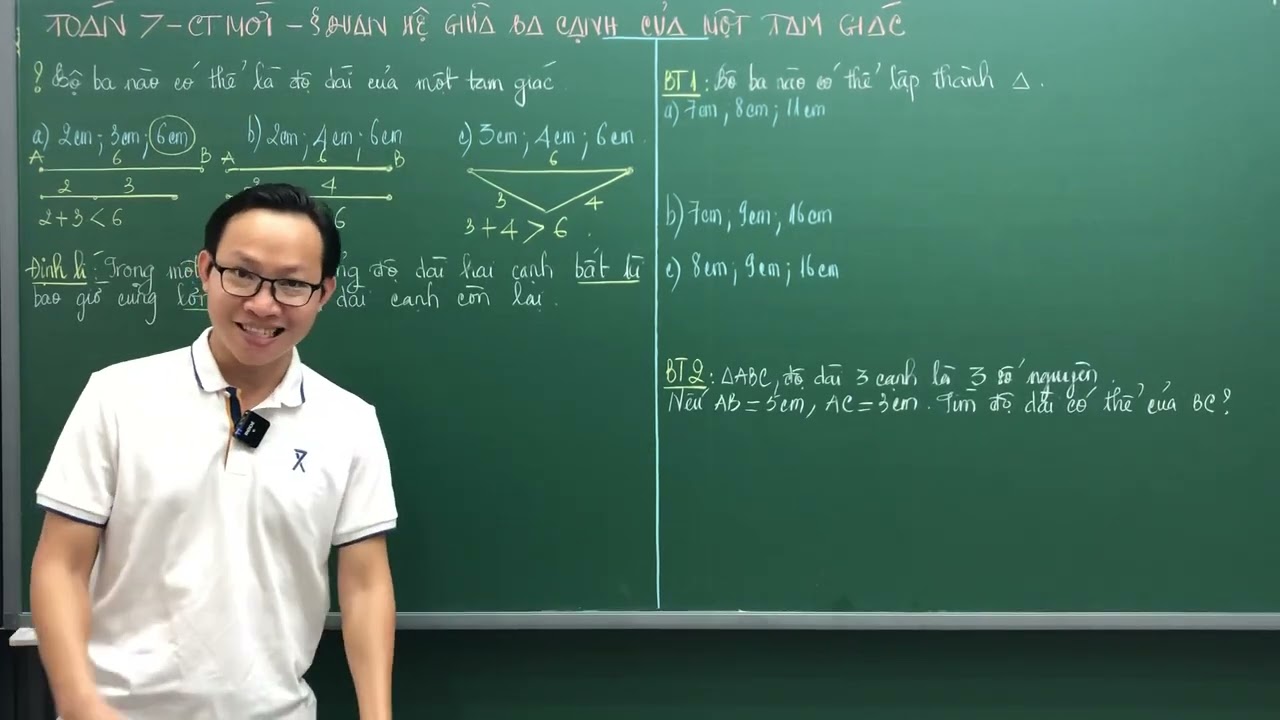 TOÁN 7 - CT MỚI - QUAN HỆ GIỮA BA CẠNH CỦA MỘT TAM GIÁC
? Bộ ba nào có thể là độ dài của một tam giác
a) 2cm ; 3cm ; 6cm
A 6 B
2 3
2 + 3 < 6
b) 2cm ; 4cm ; 6cm
A 6 B
4
6
c) 3cm ; 4cm ; 6cm
6
3 4
3 + 4 > 6
Định lí : Trong một độ dài hai cạnh bất kì
bao giờ cũng dài cạnh còn lại .
BT1 : Bộ ba nào có thể lập thành △ .
a) 7cm , 8cm ; 11cm
b) 7cm ; 9cm ; 16cm
c) 8cm ; 9cm ; 16cm
BT2 : △ABC, độ dài 3 cạnh là 3 số nguyên .
Nếu AB = 5cm, AC = 3cm . Tìm độ dài có thể của BC ?